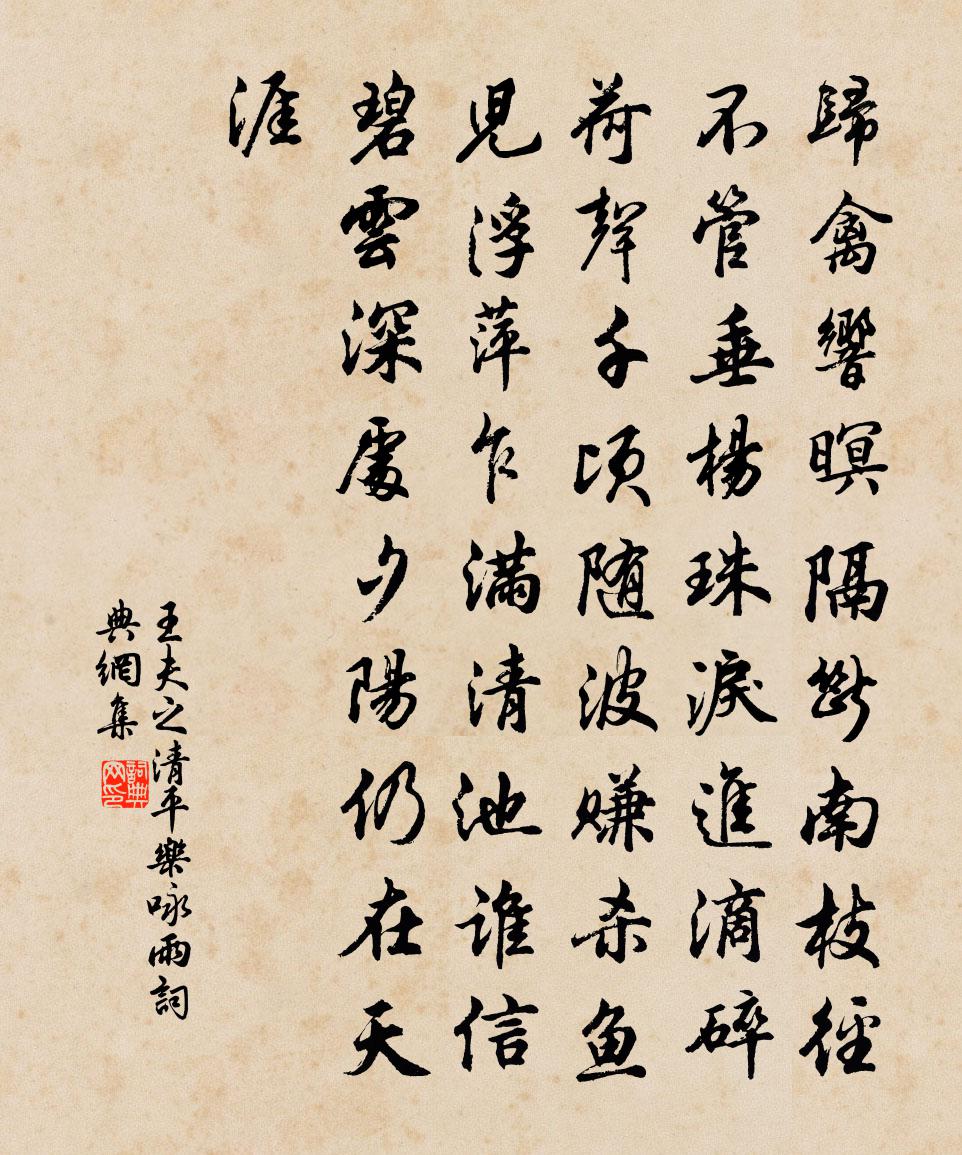 歸禽響暝隔斷南枝徑
不管垂楊珠淚進滴碎
荷聲千頃随波賺杀鱼
児浮萍乍满清池谁信
碧雲深處夕陽仍在天
涯
王夫之清平樂咏雨詞
典網集
詞典网印